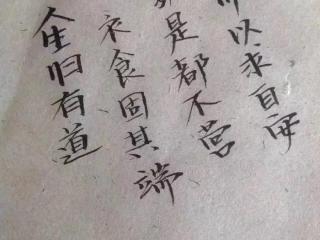 人生归有道
衣食固其端
是都不营
以求自安